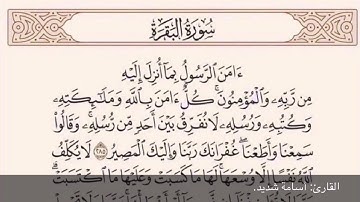 سُورَةُ البَقَرَةِ
ءَامَنَ الرَّسُولُ بِمَا أُنزِلَ إِلَيْهِ
مِن رَّبِّهِ وَالْمُؤْمِنُونَ كُلٌّ ءَامَنَ بِاللَّهِ وَمَلَائِكَتِهِ
وَكُتُبِهِ وَرُسُلِهِ لَا نُفَرِّقُ بَيْنَ أَحَدٍ مِّن رُّسُلِهِ وَقَالُوا
سَمِعْنَا وَأَطَعْنَا غُفْرَانَكَ رَبَّنَا وَإِلَيْكَ الْمَصِيرُ ٢٨٥ لَا يُكَلِّفُ
اللَّهُ نَفْسًا إِلَّا وُسْعَهَا لَهَا مَا كَسَبَتْ وَعَلَيْهَا مَا اكْتَسَبَتْ
القارئ: أسامة شديد.